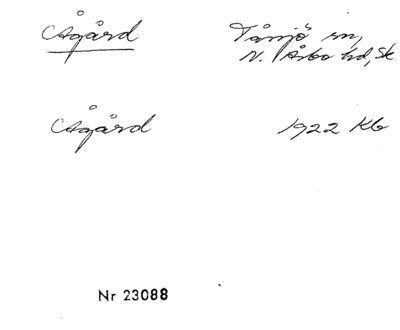 Ågård
Tåssjö sn,
N. Åsbo hd, Sk
Ågård
1922 Kb
Nr 23088